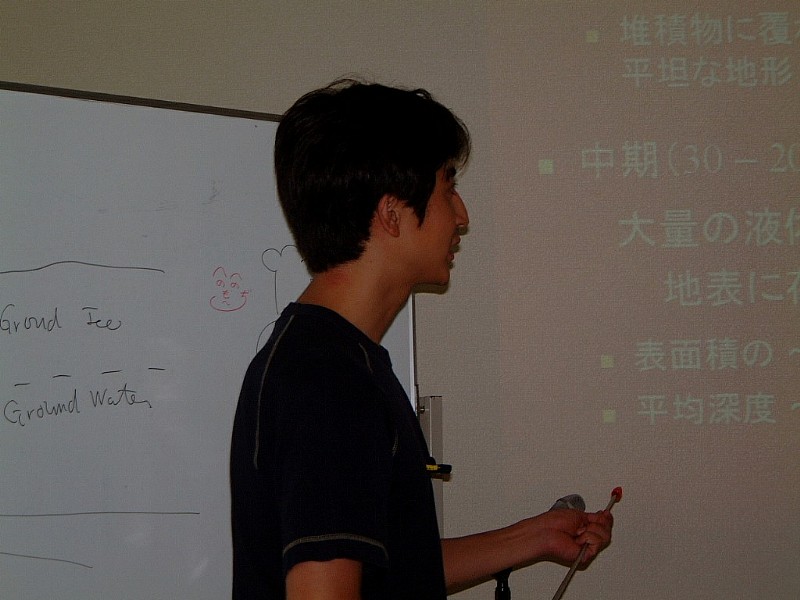 Ground Ice
Ground Water
堆積物に覆わ
平坦な地形
中期(30 – 20
大量の液体
地表に存
表面積の ~
平均深度 ~